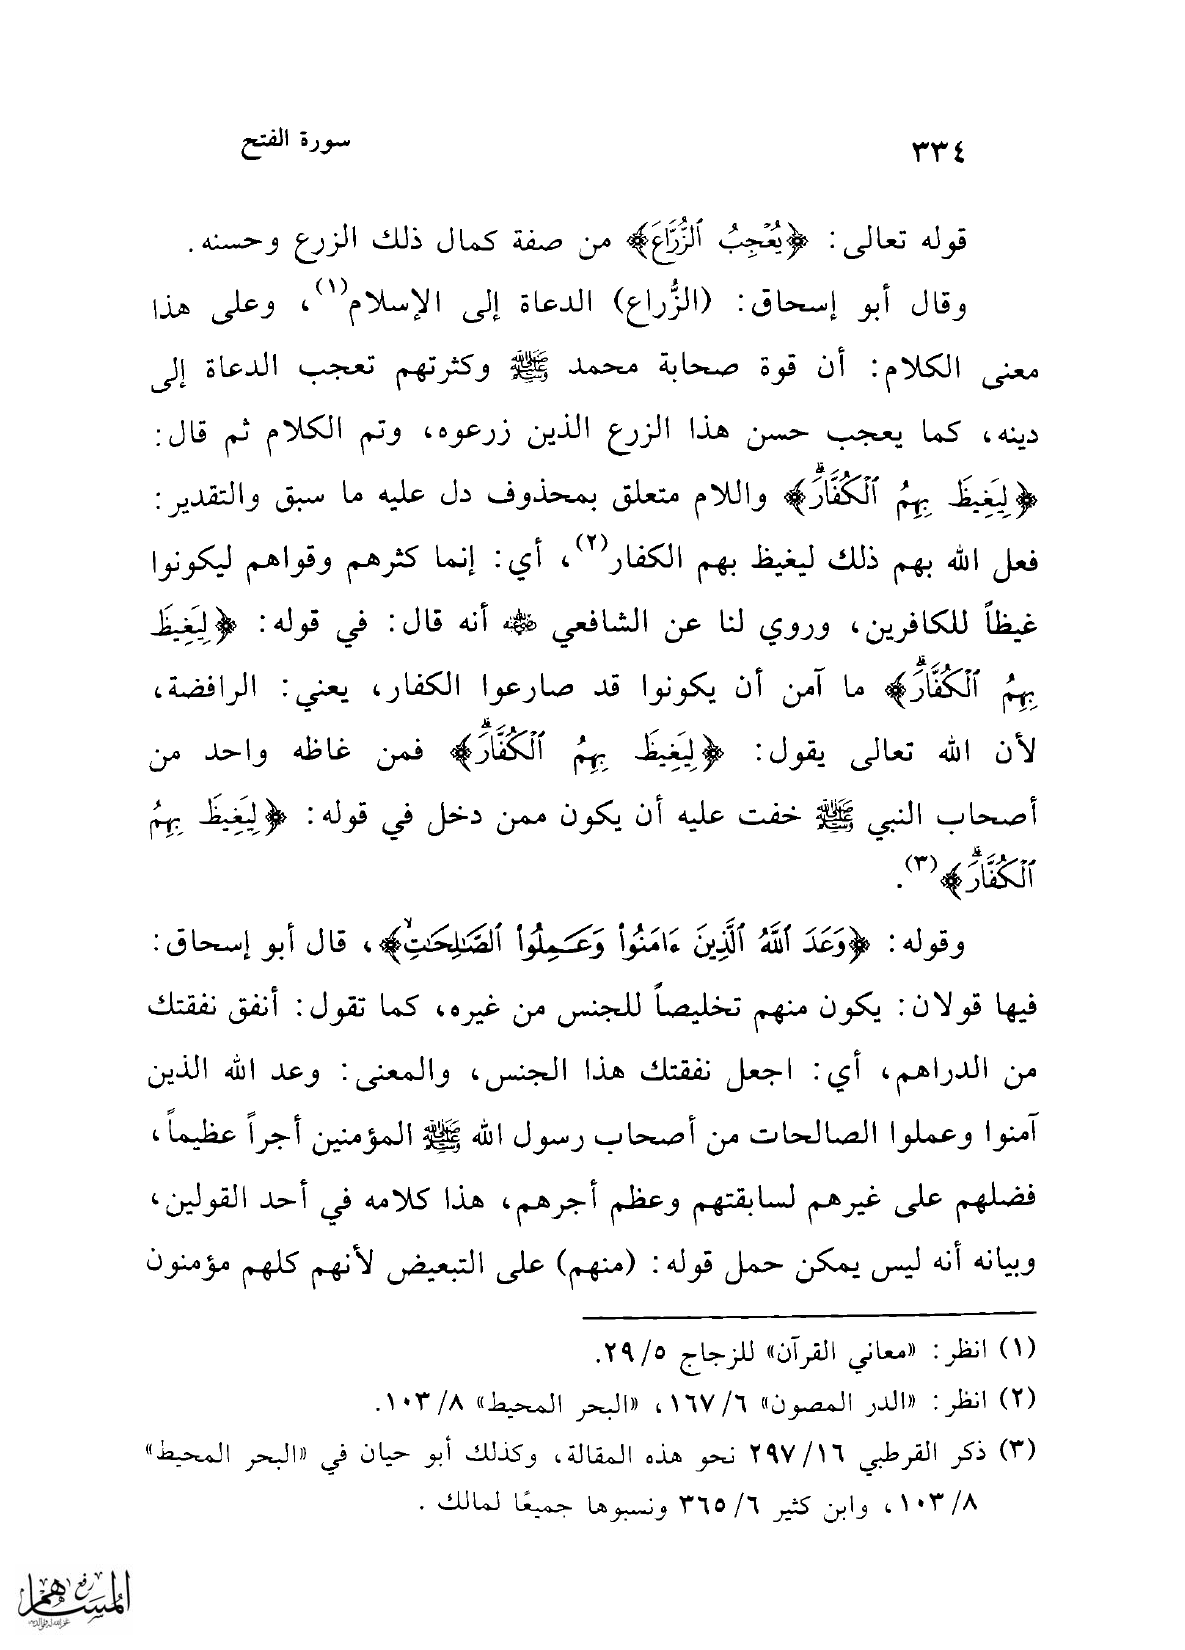 ٣٣٤
سورة الفتح
قوله تعالى: ﴿يُعْجِبُ ٱلزُّرَّاعَ﴾ من صفة كمال ذلك الزرع وحسنه.
وقال أبو إسحاق: (الزُّراع) الدعاة إلى الإسلام(١)، وعلى هذا
معنى الكلام: أن قوة صحابة محمد ﷺ وكثرتهم تعجب الدعاة إلى
دينه، كما يعجب حسن هذا الزرع الذين زرعوه، وتم الكلام ثم قال:
﴿لِيَغِيظَ بِهِمُ ٱلْكُفَّارَۗ﴾ واللام متعلق بمحذوف دل عليه ما سبق والتقدير:
فعل الله بهم ذلك ليغيظ بهم الكفار(٢)، أي: إنما كثرهم وقواهم ليكونوا
غيظاً للكافرين، وروي لنا عن الشافعي رضي الله عنه أنه قال: في قوله: ﴿لِيَغِيظَ
بِهِمُ ٱلْكُفَّارَۗ﴾ ما آمن أن يكونوا قد صارعوا الكفار، يعني: الرافضة،
لأن الله تعالى يقول: ﴿لِيَغِيظَ بِهِمُ ٱلْكُفَّارَۗ﴾ فمن غاظه واحد من
أصحاب النبي ﷺ خفت عليه أن يكون ممن دخل في قوله: ﴿لِيَغِيظَ بِهِمُ
ٱلْكُفَّارَۗ﴾(٣).
وقوله: ﴿وَعَدَ ٱللَّهُ ٱلَّذِينَ ءَامَنُوا۟ وَعَمِلُوا۟ ٱلصَّـٰلِحَـٰتِۙ﴾، قال أبو إسحاق:
فيها قولان: يكون منهم تخليصاً للجنس من غيره، كما تقول: أنفق نفقتك
من الدراهم، أي: اجعل نفقتك هذا الجنس، والمعنى: وعد الله الذين
آمنوا وعملوا الصالحات من أصحاب رسول الله ﷺ المؤمنين أجراً عظيماً،
فضلهم على غيرهم لسابقتهم وعظم أجرهم، هذا كلامه في أحد القولين،
وبيانه أنه ليس يمكن حمل قوله: (منهم) على التبعيض لأنهم كلهم مؤمنون
(١) انظر: «معاني القرآن» للزجاج ٢٩/٥.
(٢) انظر: «الدر المصون» ١٦٧/٦، «البحر المحيط» ١٠٣/٨.
(٣) ذكر القرطبي ٢٩٧/١٦ نحو هذه المقالة، وكذلك أبو حيان في «البحر المحيط»
١٠٣/٨، وابن كثير ٣٦٥/٦ ونسبوها جميعًا لمالك .